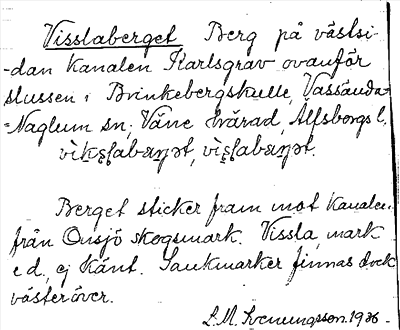 Visslaberget Berg på västsi-
-dan kanalen Karlsgrav ovanför
slussen i Brinkebergskulle, Vassända-
-Naglum sn, Väne härad, Älfsborgs l.
Berget sticker fram mot kanalen
från Onsjö skogsmark. Vissla, mark
e.d. ej känt. Sankmarker finnas dock
västeröver.
L.M. Svenungsson. 1926.